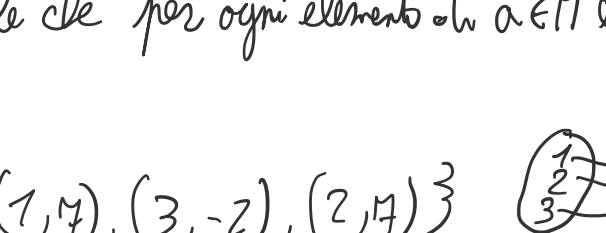 che per ogni elemento di a ∈
(1,7), (3,-2), (2,7)}
1
2
3